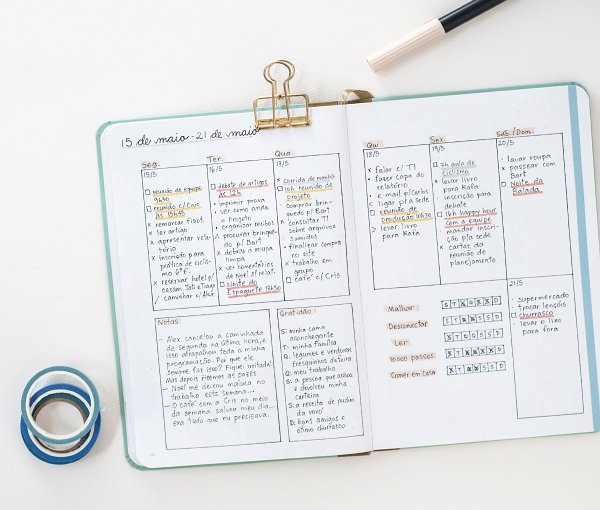 15 de maio - 21 de maio
Seg.
15/5
reunião de equipe
9h30
reunião c/ Caio
às 15h45
x remarcar fisiot.
x ler artigo
x apresentar rela-
tório
x inscrição para
prática de ciclis-
mo 6ªf.
x reservar hotel p/
casam. Tati e Tiago
/ caminhar c/ Alex
Ter.
16/5
debate de artigos
às 12h
x imprimir prova
x ver como anda
o projeto
x organizar recibos
procurar brinque-
do p/ Bart
x dobrar a roupa
limpa
x ver comentários
de Noel s/ relat.
Noite do
Espaguete 19h30
Qua.
17/5
x corrida de manhã
10h reunião de
projeto
x comprar brin-
quedo p/ Bart
x consultar TI
sobre arquivos
sumidos
x finalizar compra
no site
x trabalho em
grupo
café c/ Cris
Notas:
- Alex cancelou a caminhada
de segunda na última hora, e
isso atrapalhou toda a minha
programação. Por que ele
sempre faz isso? Fiquei irritada!
Mas depois fizemos as pazes
- Noel me deixou maluca no
trabalho esta semana...
- O café com a Cris no meio
da semana salvou meu dia...
era tudo que eu precisava.
Gratidão:
S: minha cama
aconchegante
T: minha família
Q: legumes e verduras
fresquinhos da feira
Q: meu trabalho
S: a pessoa que achou
e devolveu minha
carteira
S: a receita de pudim
da vovó
D: bons amigos e
ótimo churrasco
Qui.
18/5
x falar c/ TI
x fazer capa do
relatório
x e-mail p/ Carlos
< ligar p/ a sede
reunião de
produção 10h30
> levar livro
para Rafa
Sex.
19/5
7h aula de
Ciclismo
x levar livro
para Rafa
- inscrição para
debate
16h happy hour
com a equipe
x mandar inscri-
ção p/a sede
x cartaz da
reunião de
planejamento
Sáb./Dom.
20/5
- lavar roupa
x passear com
Bart
Noite da
Balada
21/5
- supermercado
- trocar lençóis
churrasco
levar o lixo
para fora
Malhar
Desconectar
Ler
10.000 passos
Comer em casa